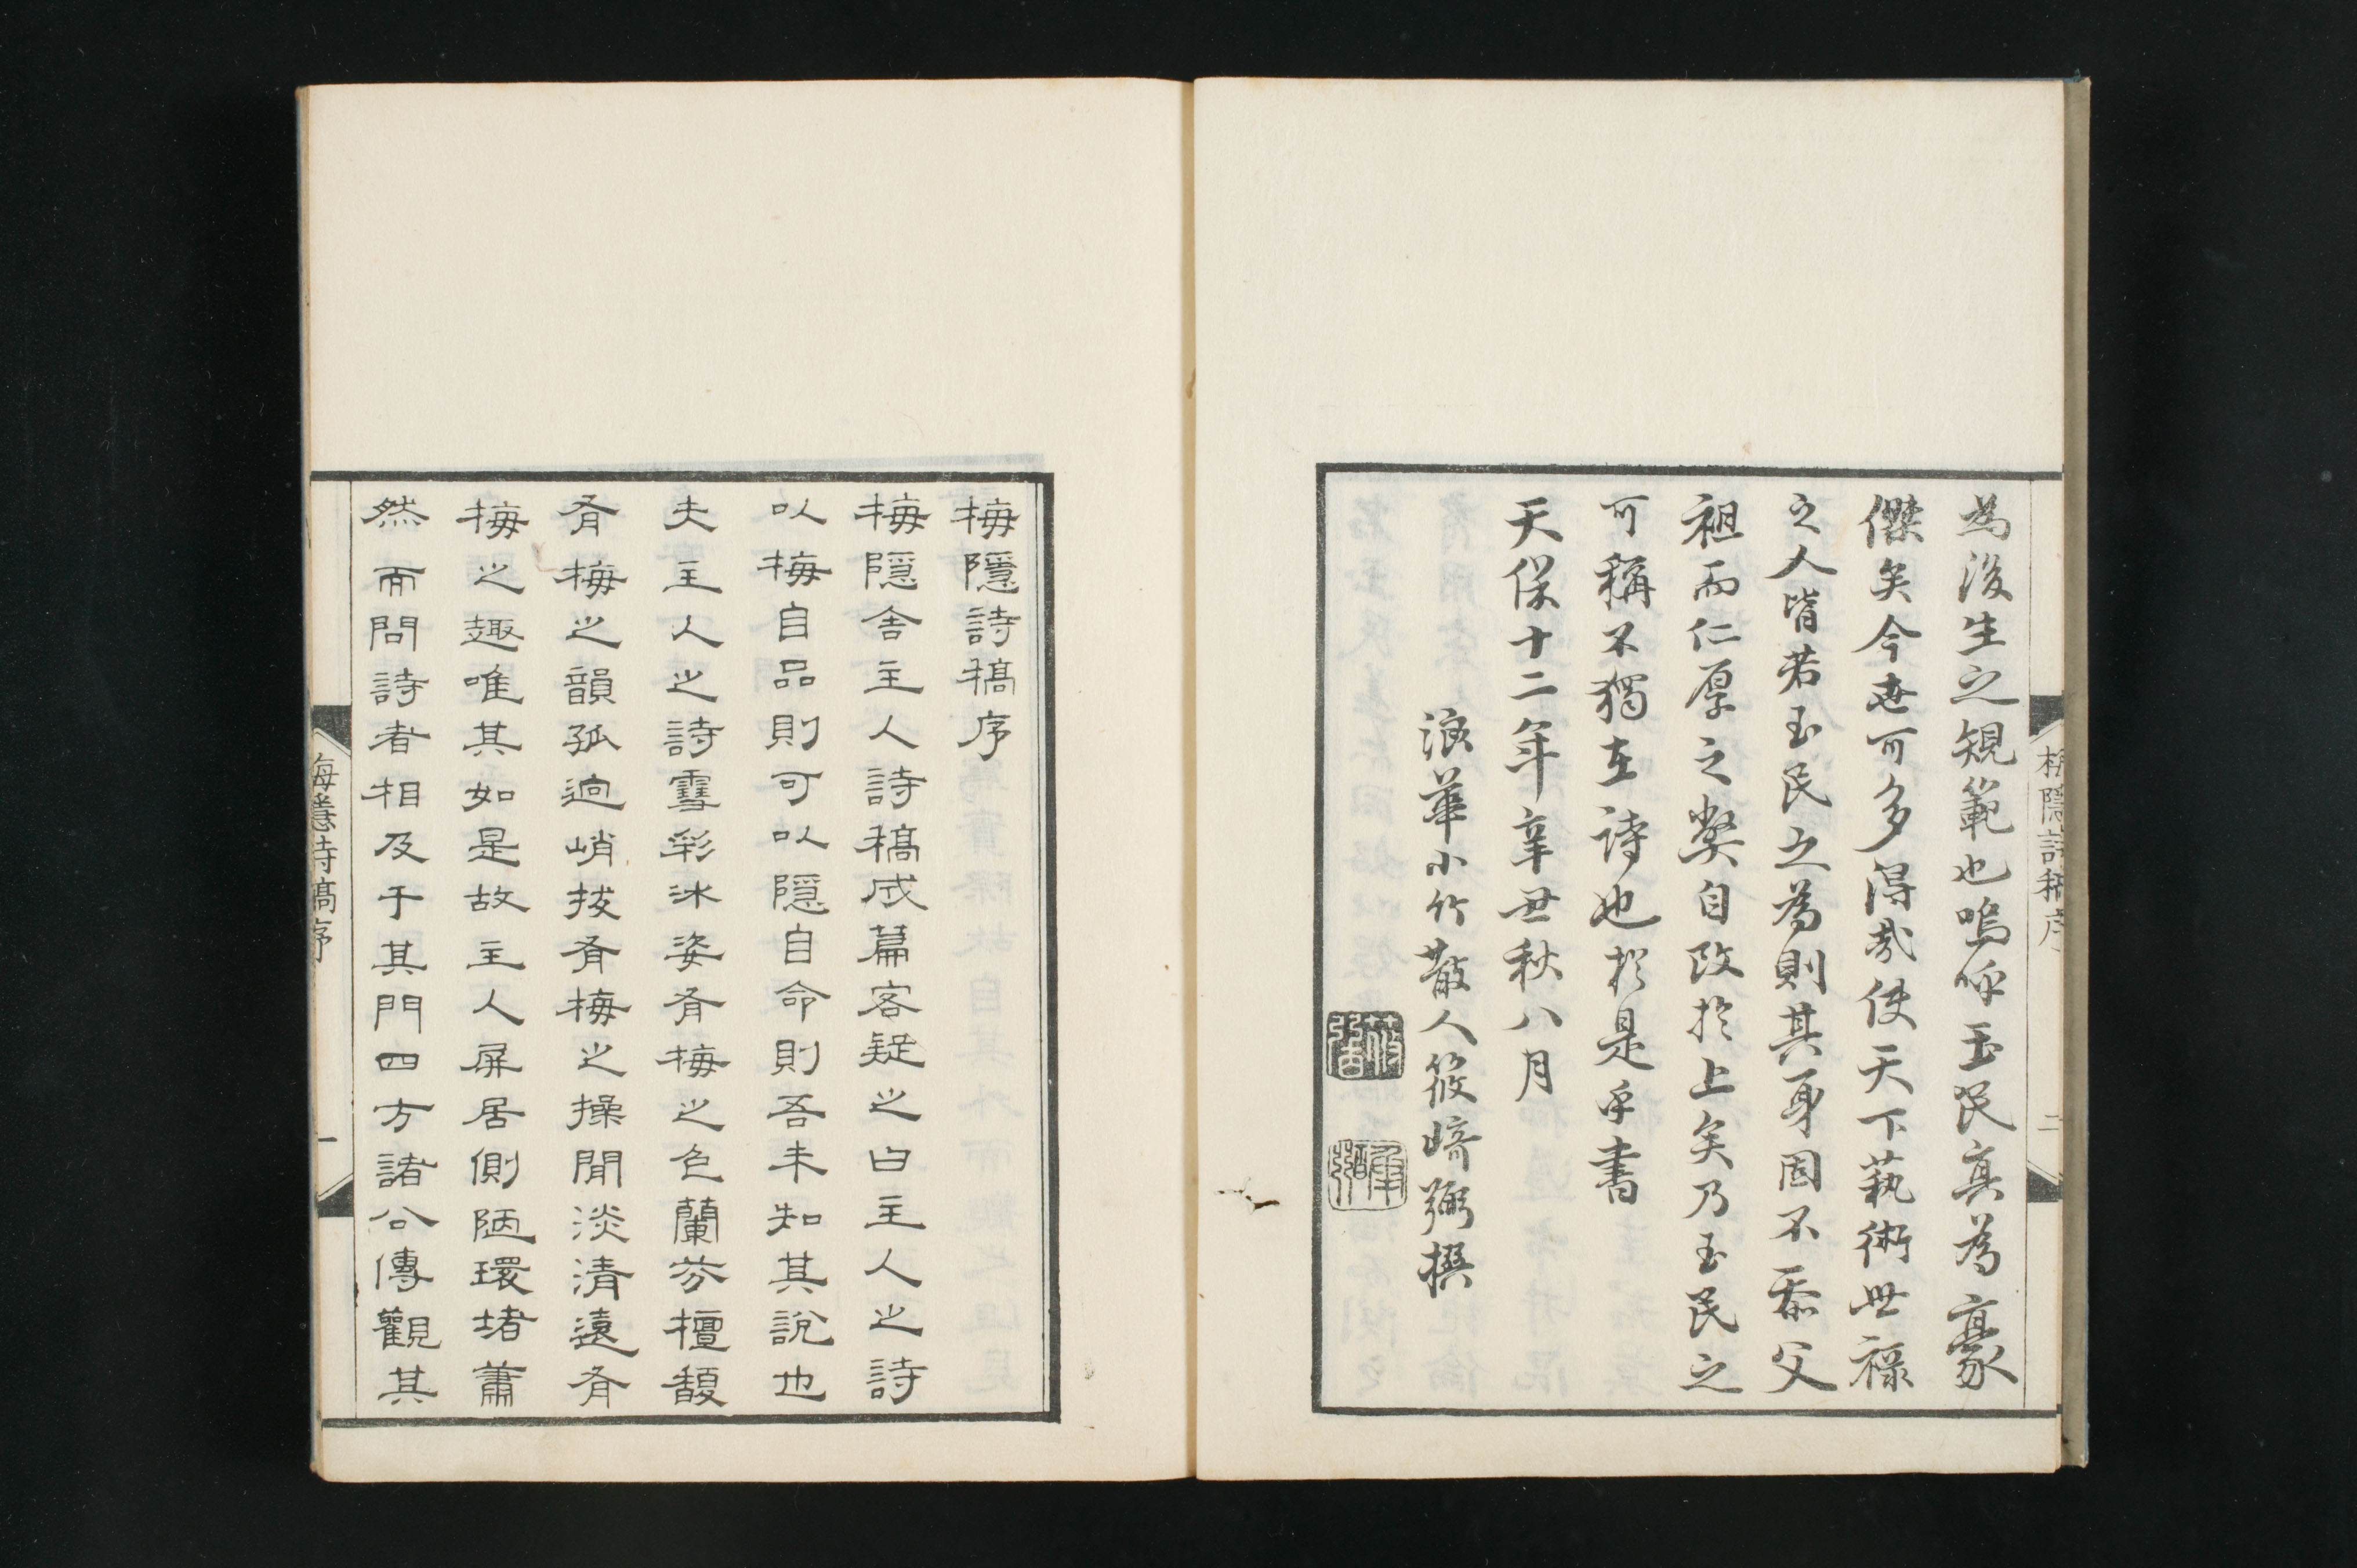 為後生之規範也嗚呼玉民真為豪
傑矣今世可多得哉使天下藝術世祿
之人皆若玉民之為則其身固不忝父
祖而仁厚之獘自改於上矣乃玉民之
可稱不獨在詩也於是乎書
天保十二年辛丑秋八月
浪華小竹散人筱﨑弼撰
梅隱詩稿序
二
梅隱詩稿序
梅隱舍主人詩稿成篇客疑之曰主人之詩
以梅自品則可以隱自命則吾未知其說也
夫主人之詩雪彩冰姿有梅之色蘭芬檀馥
有梅之韻孤逈峭拔有梅之操閒淡清遠有
梅之趣唯其如是故主人屏居側陋環堵蕭
然而問詩者相及于其門四方諸公傳觀其
梅隱詩稿序
一